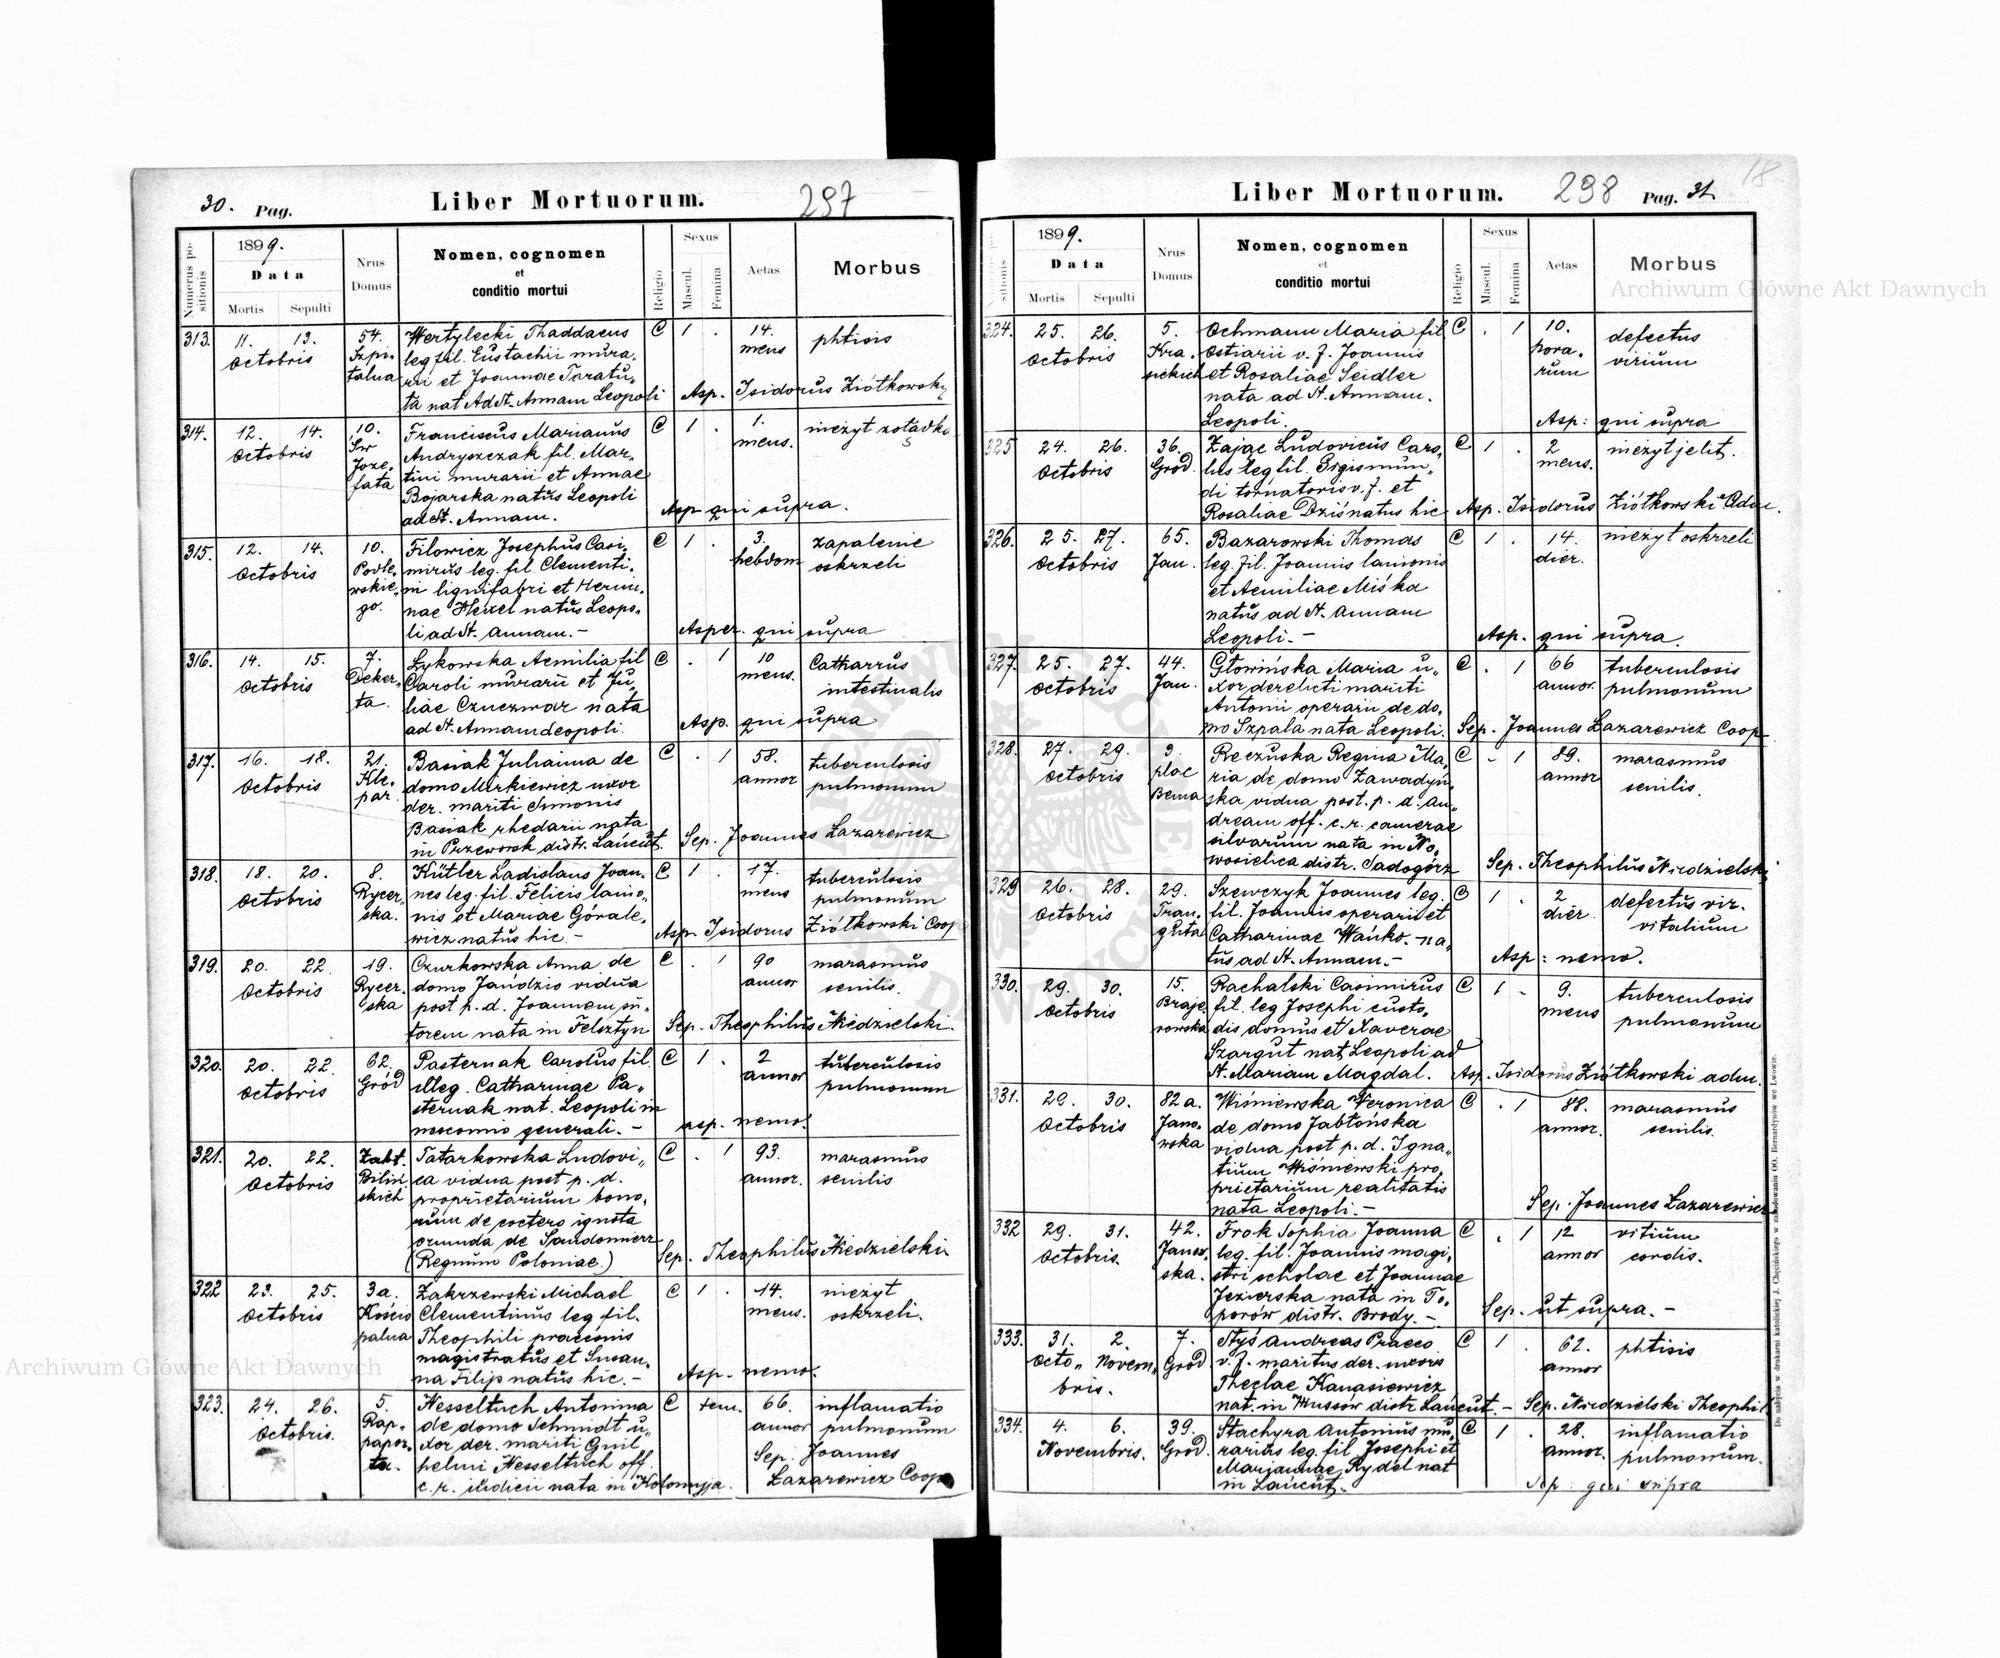 30. Pag.
Liber Mortuorum.
297
Numerus positionis
1899.
Data
Mortis Sepulti
Nrus Domus
Nomen, cognomen
et
conditio mortui
Religio
Sexus
Mascul. Femina
Aetas
Morbus
313. 11. 13. 54. Wertylecki Thaddaeus C 1 . 14. phtisis
octobris Szpi- leg fil. Eustachii mura- mens
talna rii et Joannae Taratu-
ta nat Ad St. Annam Leopoli Asp. Isidorus Ziółkowsky
314. 12. 14. 10. Franciscus Marianus C 1 . 1. nieżyt żołądka
octobris Sw Andryszczak fil. Mar- mens.
Joze- tini murarii et Annae
fata Bojarska natus Leopoli
ad St. Annam. Asp qui supra.
315. 12. 14. 10. Filowicz Josephus Casi- C 1 . 3. zapalenie
octobris Podle- mirus leg. fil. Clementi- hebdom oskrzeli
wskie- ni lignifabri et Hermi-
go. nae Hexel natus Leopo-
li ad St. Annam. - Asper. qui supra
316. 14. 15. 7. Łykowska Aemilia fil C . 1 10 Catharrus
octobris Deker- Caroli murarii et Ju- mens. intestinalis
ta. liae Czuczwar nata
ad St. Annam Leopoli. Asp. qui supra
317. 16. 18. 21. Basiak Julianna de C . 1 58. tuberculosis
octobris Kle- domo Markiewicz uxor annor pulmonum
par. der. mariti Simonis
Basiak rhedarii nata
in Przeworsk distr. Łańcut. Sep. Joannes Lazarewicz
318. 18. 20. 8. Kütler Ladislaus Joan- C 1 . 17. tuberculosis
octobris Rycer- nes leg. fil. Felicis lanio- mens pulmonum
ska. nis et Mariae Górale-
wicz natus hic. - Asp. Isidorus Ziółkowski Coop
319. 20. 22 19. Czurkowska Anna de C . 1 90 marasmus
octobris Rycer- domo Jandzio vidua annor senilis.
ska post p. d. Joannem su-
torem nata in Felsztyn Sep. Theophilus Niedzielski.
320. 20. 22. 62. Pasternak Carolus fil. C 1 . 2 tuberculosis
octobris Gród illeg. Catharinae Pa- annor pulmonum
sternak nat. Leopoli in
noscomio generali. - asp. nemo.
321. 20. 22. Zakł. Tatarkowska Ludovi- C . 1 93. marasmus
octobris Biliń- ca vidua post p. d. annor. senilis
skich proprietarium bono-
rum de coetero ignota
oriunda de Sandomierz
(Regnum Poloniae) Sep. Theophilus Niedzielski.
322 23. 25. 3a. Zakrzewski Michael C 1 . 14. nieżyt
octobris Kościo Clementinus leg fil. mens. oskrzeli.
palna Theophili praeconis
magistratus et Susan-
na Filip natus hic. - Asp. nemo.
323. 24. 26. 5. Hesseltuch Antonina C fem. 66. inflamatio
octobris. Rap- de domo Schmidt u- annor pulmonum
papor- xor der. mariti Guil Sep. Joannes
ta. helmi Hesseltuch off. Lazarewicz Coop
c. r. iudicii nata in Kołomyja.
Liber Mortuorum.
298
Pag. 31
18
1899.
Data
Mortis Sepulti
Nrus Domus
Nomen, cognomen
et
conditio mortui
Religio
Sexus
Mascul. Femina
Aetas
Morbus
324. 25. 26. 5. Ochmann Maria fil C . 1 10. defectus
octobris Kra- ostiarii v. f. Joannis hora- virium
sickich et Rosaliae Seidler rum
nata ad St. Annam.
Leopoli. Asp: qui supra
325 24. 26. 36. Zając Ludovicus Caro- C 1 . 2 nieżyt jelit.
octobris Gród. lus leg fil. Sigismun- mens.
di tornatoris v. f. et
Rosaliae Dziś natus hic Asp. Isidorus Ziółkowski Adm.
326. 25. 27. 65. Bazarowski Thomas C 1 . 14. nieżyt oskrzeli
octobris Jan. leg. fil. Joannis lanionis dier.
et Aemiliae Miśka
natus ad St. Annam
Leopoli. - Asp. qui supra.
327. 25. 27. 44. Głowińska Maria u- C . 1 66 tuberculosis
octobris Jan. xor derelicti mariti annor. pulmonum
Antonii operarii de do-
mo Szpala nata Leopoli. Sep. Joannes Lazarewicz Coop
328. 27. 29. 9. Reczuska Regina Ma- C . 1 89. marasmus
octobris plac ria de domo Zawadyń- annor senilis.
Bema ska vidua post. p. d. An-
dream off. c. r. camerae
silvarum nata in No-
wosielica distr. Sadogórz Sep. Theophilus Niedzielski
329 26. 28. 29. Szewczyk Joannes leg. C 1 . 2 defectus vir.
octobris Frau- fil. Joannis operarii et dier vitalium
guta Catharinae Wańko. - na-
tus ad St. Annam. - Asp: nemo.
330. 29. 30. 15. Rachalski Casimirus C 1 . 9. tuberculosis
octobris Braje- fil. leg Josephi custo- mens pulmonum
rowska dis domus et Xaverae
Szargut nat Leopoli ad
St. Mariam Magdal. Asp. Isidorus Ziółkowski adm.
331. 29. 30. 82a. Wiśniewska Veronica C . 1 88. marasmus
octobris Jano- de domo Jabłońska annor. senilis.
wska vidua post p. d. Igna-
tium Wiśniewski pro-
prietarium realitatis
nata Leopoli. - Sep. Joannes Lazarewicz
332 29. 31. 42. Frok Sophia Joanna C . 1 12 vitium
octobris. Janow- leg. fil. Joannis magi- annor cordis.
ska. stri scholae et Joannae
Jezierska nata in To-
porów distr. Brody. - Sep. ut supra. -
333. 31. 2. 7. Styś Andreas Praeco C 1 . 62. phtisis
octo- Novem- Gród v. f. maritus der. uxoris annor
bris. Theclae Kanasiewicz
nat. in Hussów distr Łańcut. - Sep. Niedzielski Theophil
334. 4. 6. 39. Stachyra Antonius mu- C 1 . 28. inflamatio
Novembris. Gród. rarius leg. fil. Josephi et annor. pulmonum.
Mariannae Rydel nat
in Łańcut. Sep: qui supra
Do nabycia w drukarni katolickiej J. Chęcińskiego w zabudowaniu OO. Bernardynów we Lwowie.
Archiwum Główne Akt Dawnych
Archiwum Główne Akt Dawnych